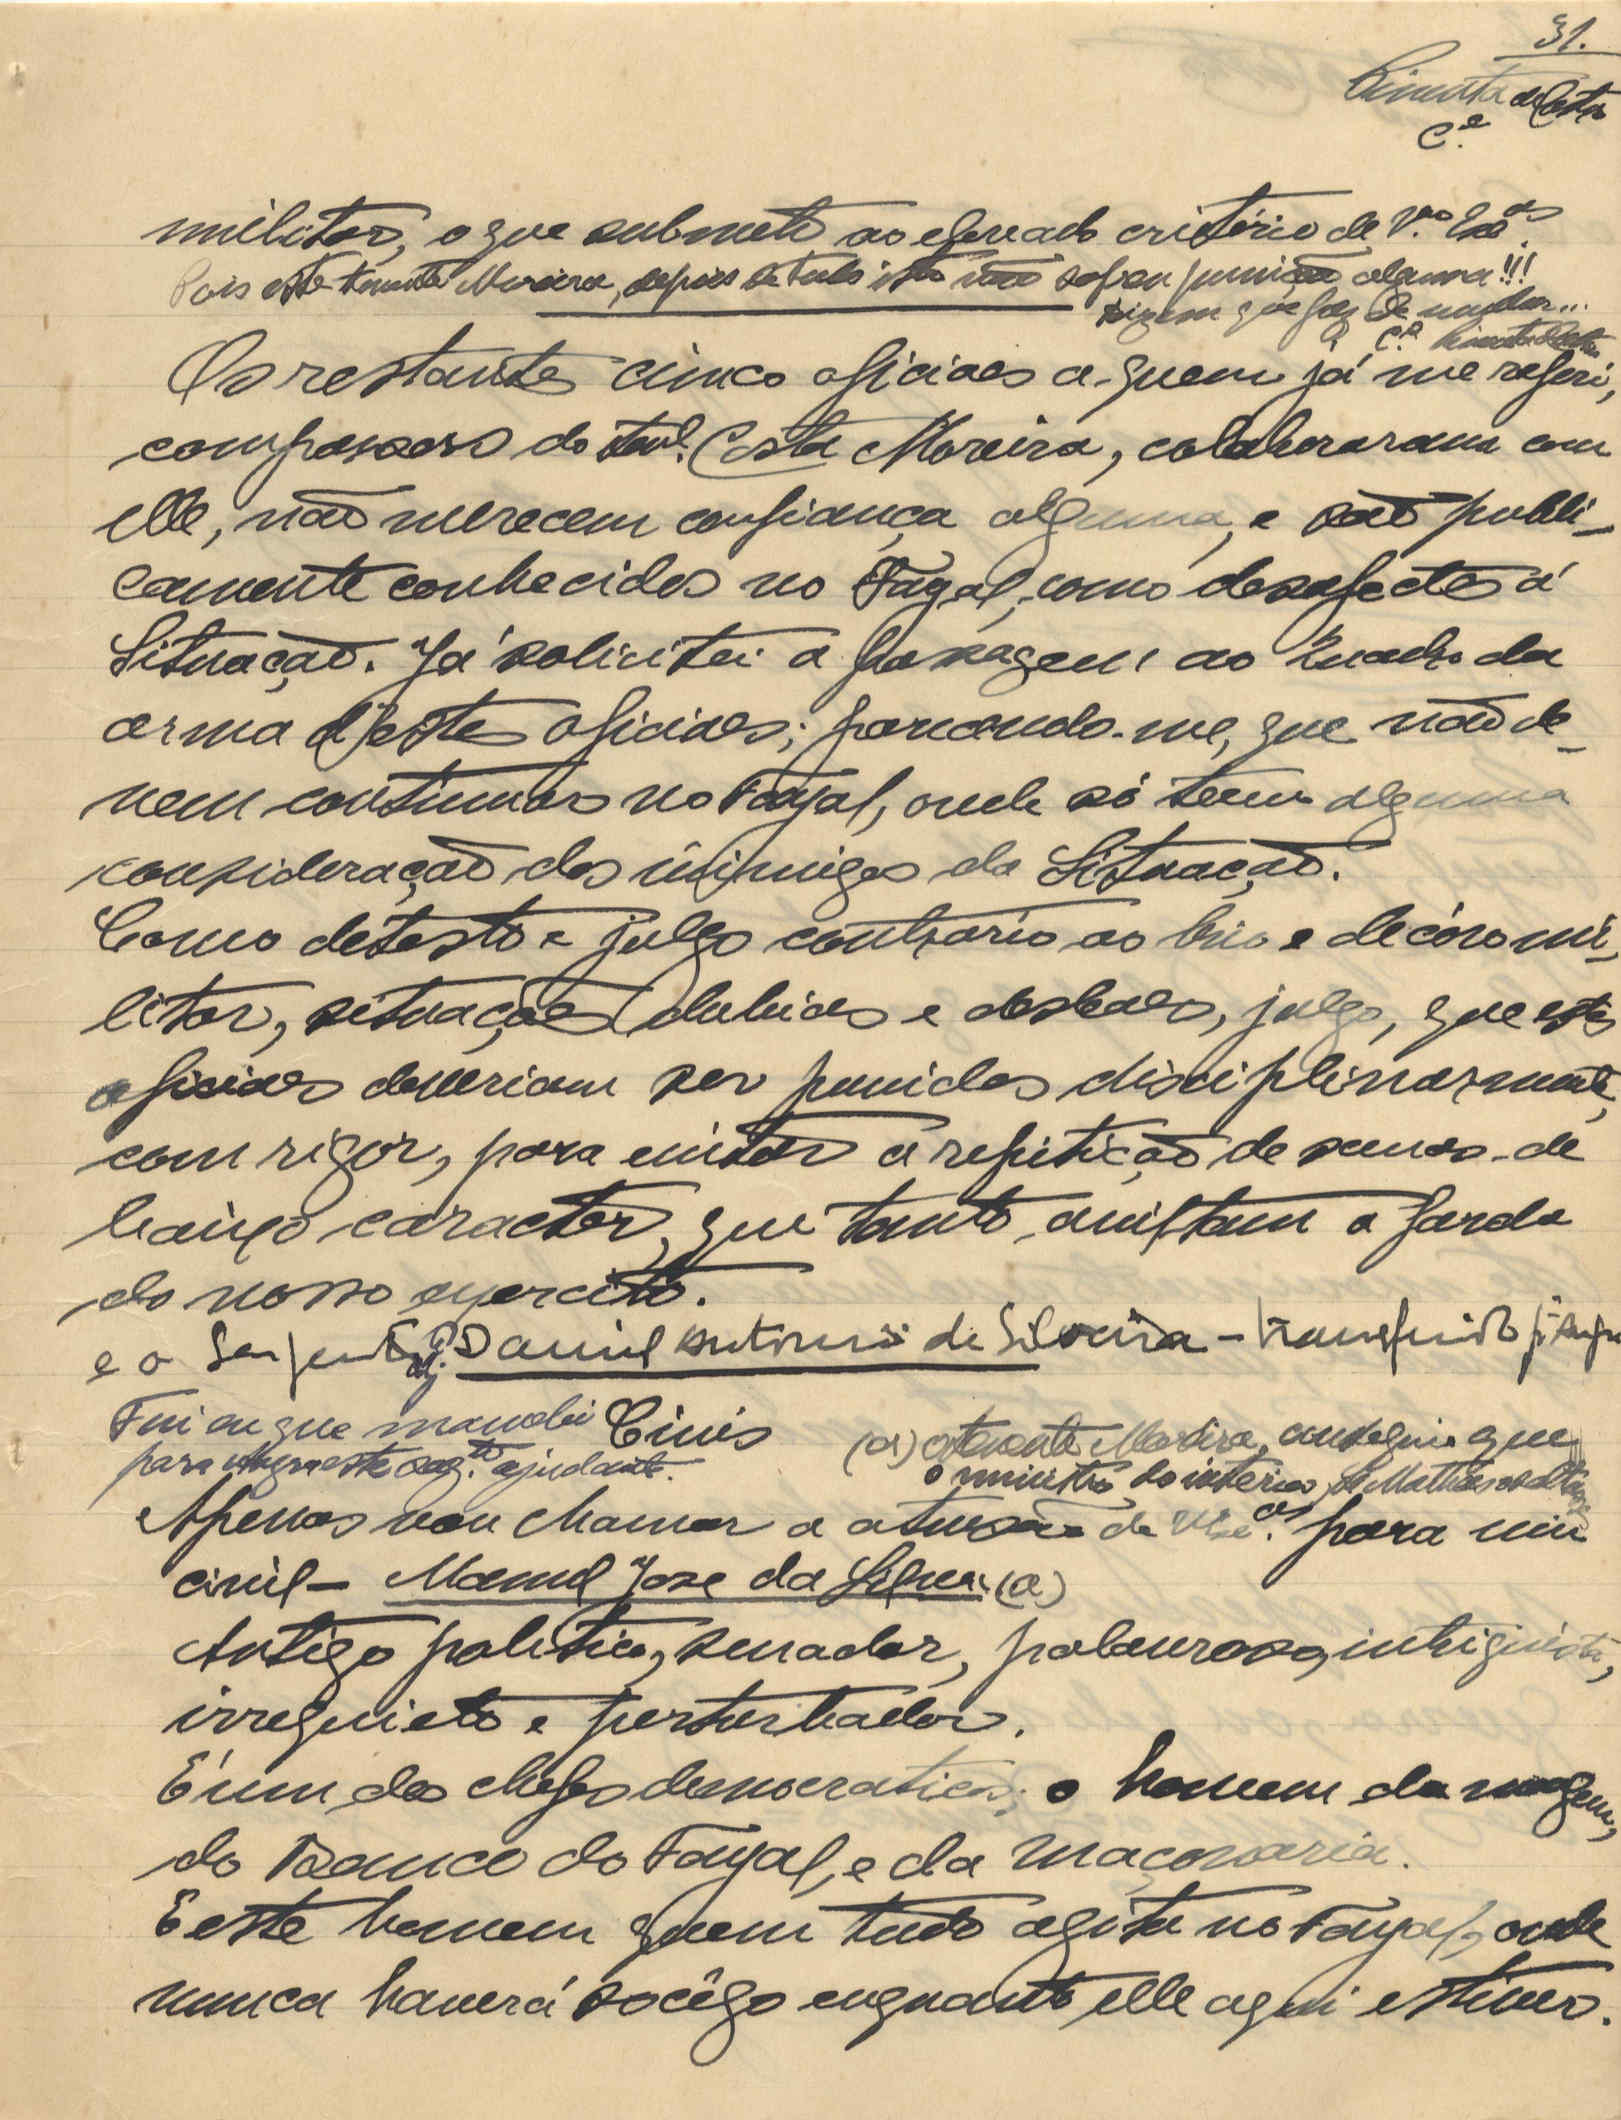 31.
Pimenta de Castro
C.el
militar, o que submeto ao elevado critério de V.as Ex.as
Pois este tenente Moreira, depois de tudo isto não sofreu punição alguma!!!
dizem que
C.el Pimenta de Castro
Os restantes cinco oficiaes a quem já me referi,
comparsas do ten.te Costa Moreira, colaboraram com
elle, não merecem confiança alguma, e são publi-
camente conhecidos no Fayal, como desafectos á
Situação. Já solicitei a passagem ao Quadro da
arma d'estes oficiaes; parecendo-me, que não de-
vem continuar no Fayal, onde só teem alguma
consideração dos inimigos da Situação.
Como detesto e julgo contrário ao brio e decóro mi-
litar, situações dubias e desleaes, julgo, que estes
oficiaes deveriam ser punidos disciplinarmente,
com rigor, para evitar a repetição de scenas de
baixo caracter, que tanto enxovalham a farda
do nosso exercito.
e o Sargento Aj. Daniel Antonio da Silveira - transferido p.ª Angra
Fui eu que mandei
para Angra este sarg.to ajudante.
Civis
(a) o tenente Moreira, conseguiu que
o ministro do interior
Apenas vou chamar a atenção de V.as Ex.as para um
civil - Manuel José da Silva (a)
Antigo politico, senador, palavroso, intriguista,
irrequieto e perturbador.
É um dos chefes democraticos; o homem da
do Banco do Fayal, e da maçonaria.
É este homem quem tudo agita no Fayal, onde
nunca haverá socêgo enquanto elle aqui estiver.